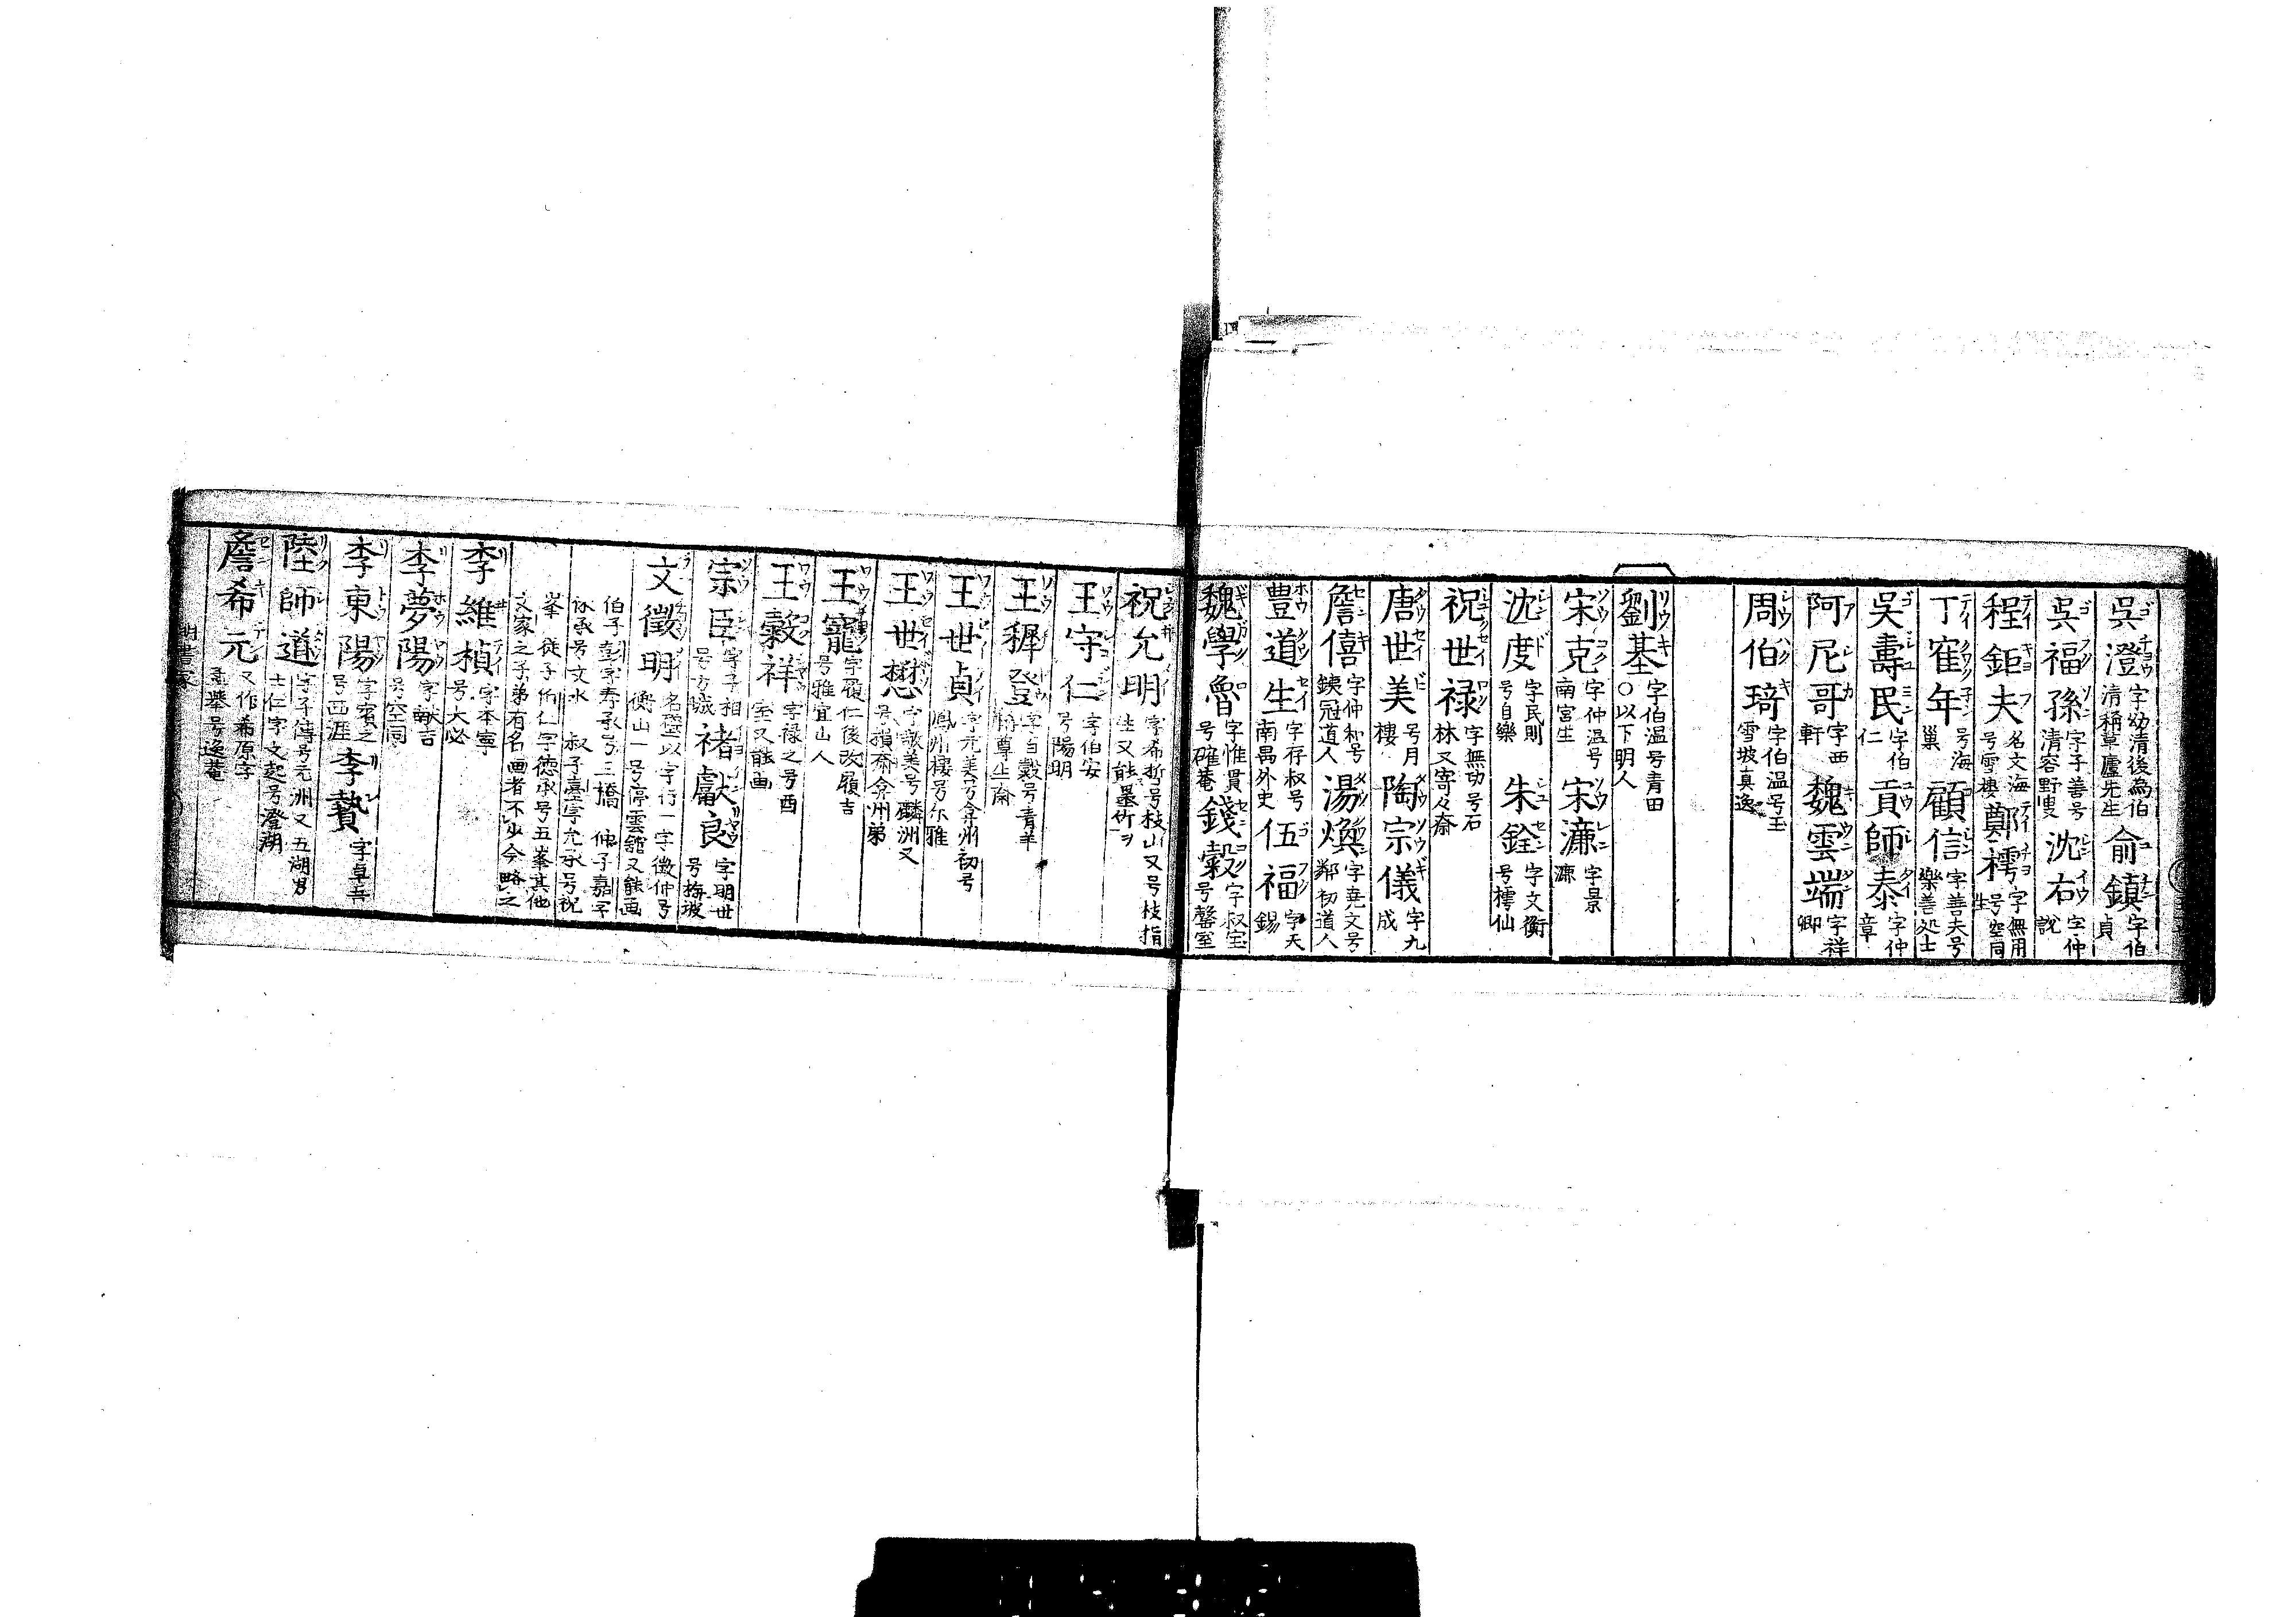 吳澄 字幼清後為伯清稱草廬先生 俞鎮 字伯貞
吳福孫 字子善号清容野叟 沈右 字仲説
程鉅夫 名文海号雪樓 鄭樗 字無用号空同生
丁寉年 号海巢 顧信 字善夫号樂善処士
吳壽民 字伯仁 貢師泰 字仲章
阿尼哥 字西軒 魏雲端 字祥卿
周伯琦 字伯温号玉雪坡真逸
劉基 字伯温号青田 〇以下明人
宋克 字仲温号南宮生 宋濂 字景濂
沈度 字民則号自樂 朱銓 字文衡号樗仙
祝世禄 字無功号石林又寄々斎
唐世美 号月樓 陶宗儀 字九成
詹僖 字仲和号鉄冠道人 湯煥 字堯文号鄰初道人
豊道生 字存叔号南昌外史 伍福 字天錫
魏學魯 字惟貫号確菴 錢穀 字叔宝号磬室
祝允明 字希哲号枝山又号枝指生又能墨竹ヲ
王守仁 字伯安号陽明
王穉登 字百穀号青羊
王世貞 字元美号弇州初号鳳州樓号尔雅
王世懋 字敬美号麟洲又号損斎弇州弟
王寵 字履仁後改履吉号雅宜山人
王穀祥 字禄之号酉室又能画
宗臣 字子相号方城 褚獻良 字明世号梅坡
文徵明 名璧以字行一字徴仲号衡山一号停雲舘又能画
伯子彭字寿承号三橋 仲子嘉字休承号文水 叔子臺字允承号祝
峯 從子伯仁字徳承号五峯其他文家之子弟有名画者不少今略之
李維楨 字本寧号大必
李夢陽 字献吉号空同
李東陽 字賓之号西涯 李贄 字卓吾
陸師道 字子傳号元洲又五湖男士仁字文起号澄湖
詹希元 又作希原字孟舉号逸菴
明書家